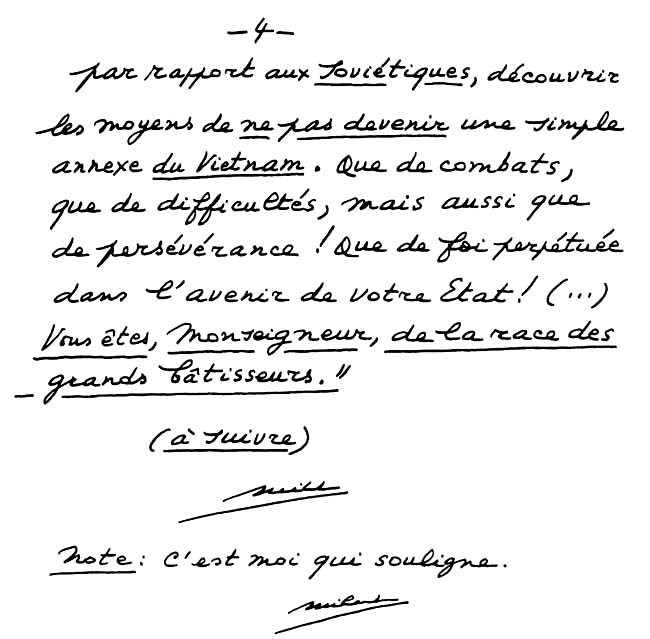 -4-
par rapport aux Soviétiques, découvrir
les moyens de ne pas devenir une simple
annexe du Vietnam. Que de combats,
que de difficultés, mais aussi que
de persévérance ! Que de foi perpétuée
dans l'avenir de votre Etat ! (...)
Vous êtes, Monseigneur, de la race des
grands bâtisseurs."
(à suivre)
Note : C'est moi qui souligne.